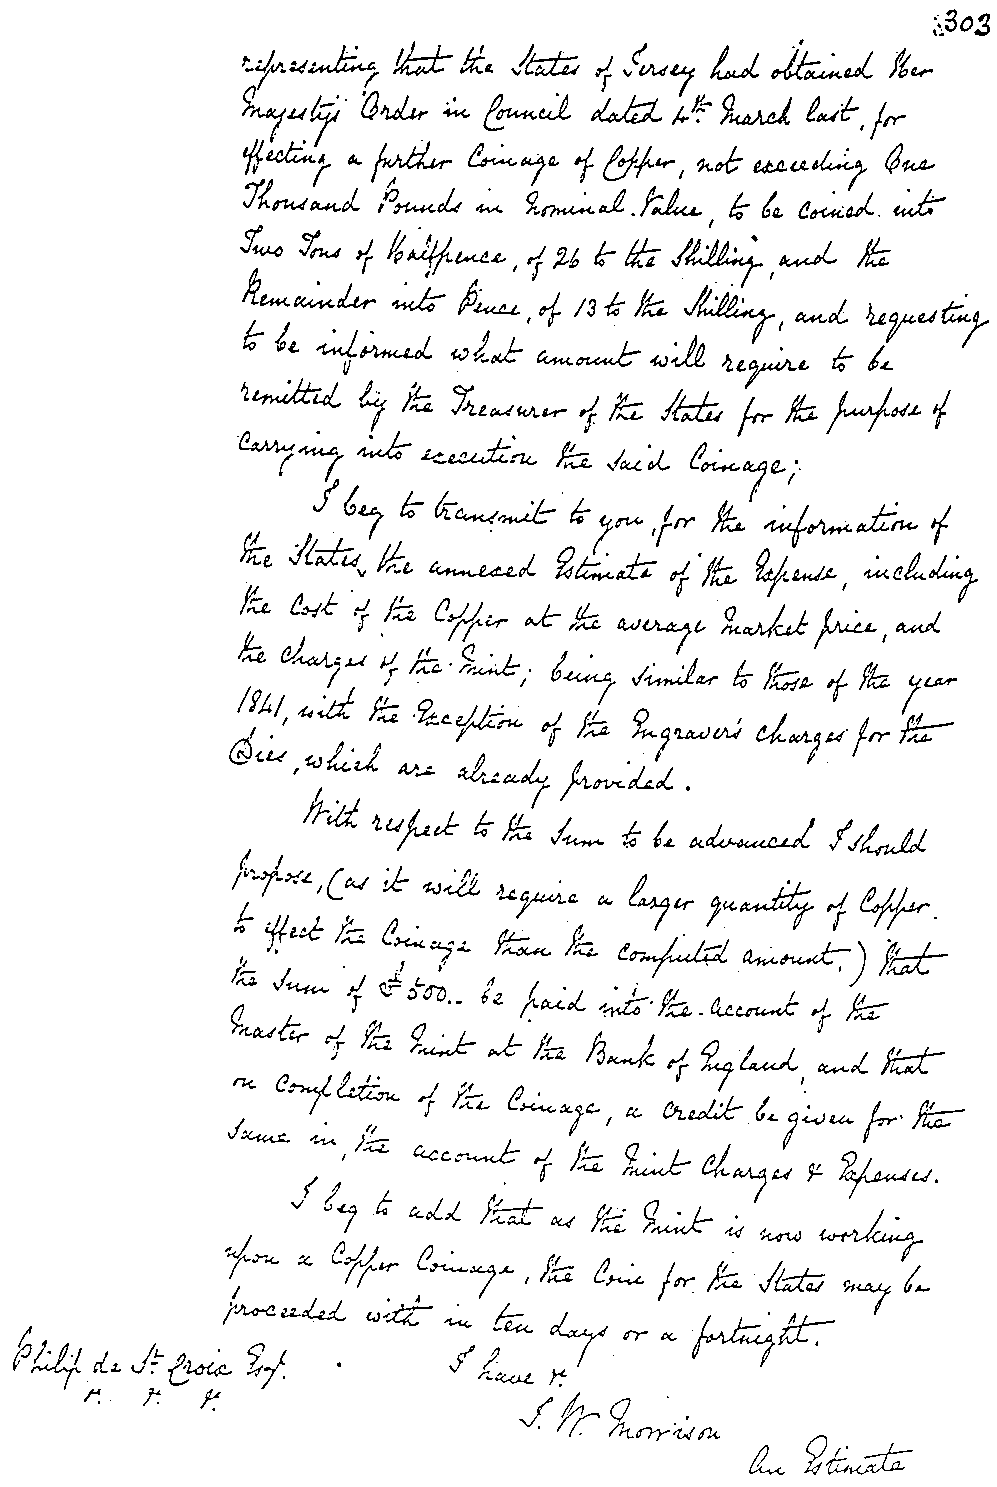 303
representing that the States of Jersey had obtained Her
Majesty's Order in Council dated 4th. March last, for
effecting a further Coinage of Copper, not exceeding One
Thousand Pounds in Nominal Value, to be coined into
Two Tons of Halfpence, of 26 to the Shilling, and the
Remainder into Pence, of 13 to the Shilling, and requesting
to be informed what amount will require to be
remitted by the Treasurer of the States for the purpose of
carrying into execution the said Coinage;
I beg to transmit to you, for the information of
the States, the annexed Estimate of the Expense, including
the Cost of the Copper at the average Market price, and
the charges of the Mint; being similar to those of the year
1841, with the Exception of the Engraver's charges for the
Dies, which are already provided.
With respect to the Sum to be advanced I should
propose, (as it will require a larger quantity of Copper
to effect the Coinage than the computed amount,) that
the Sum of £500.. be paid into the account of the
Master of the Mint at the Bank of England, and that
on completion of the Coinage, a credit be given for the
same in, the account of the Mint Charges & Expenses.
I beg to add that as the Mint is now working
upon a Copper Coinage, the Coin for the States may be
proceeded with in ten days or a fortnight.
Philip de St. Croix Esqr.
&. &. &.
I have &.
J. W. Morrison
An Estimate